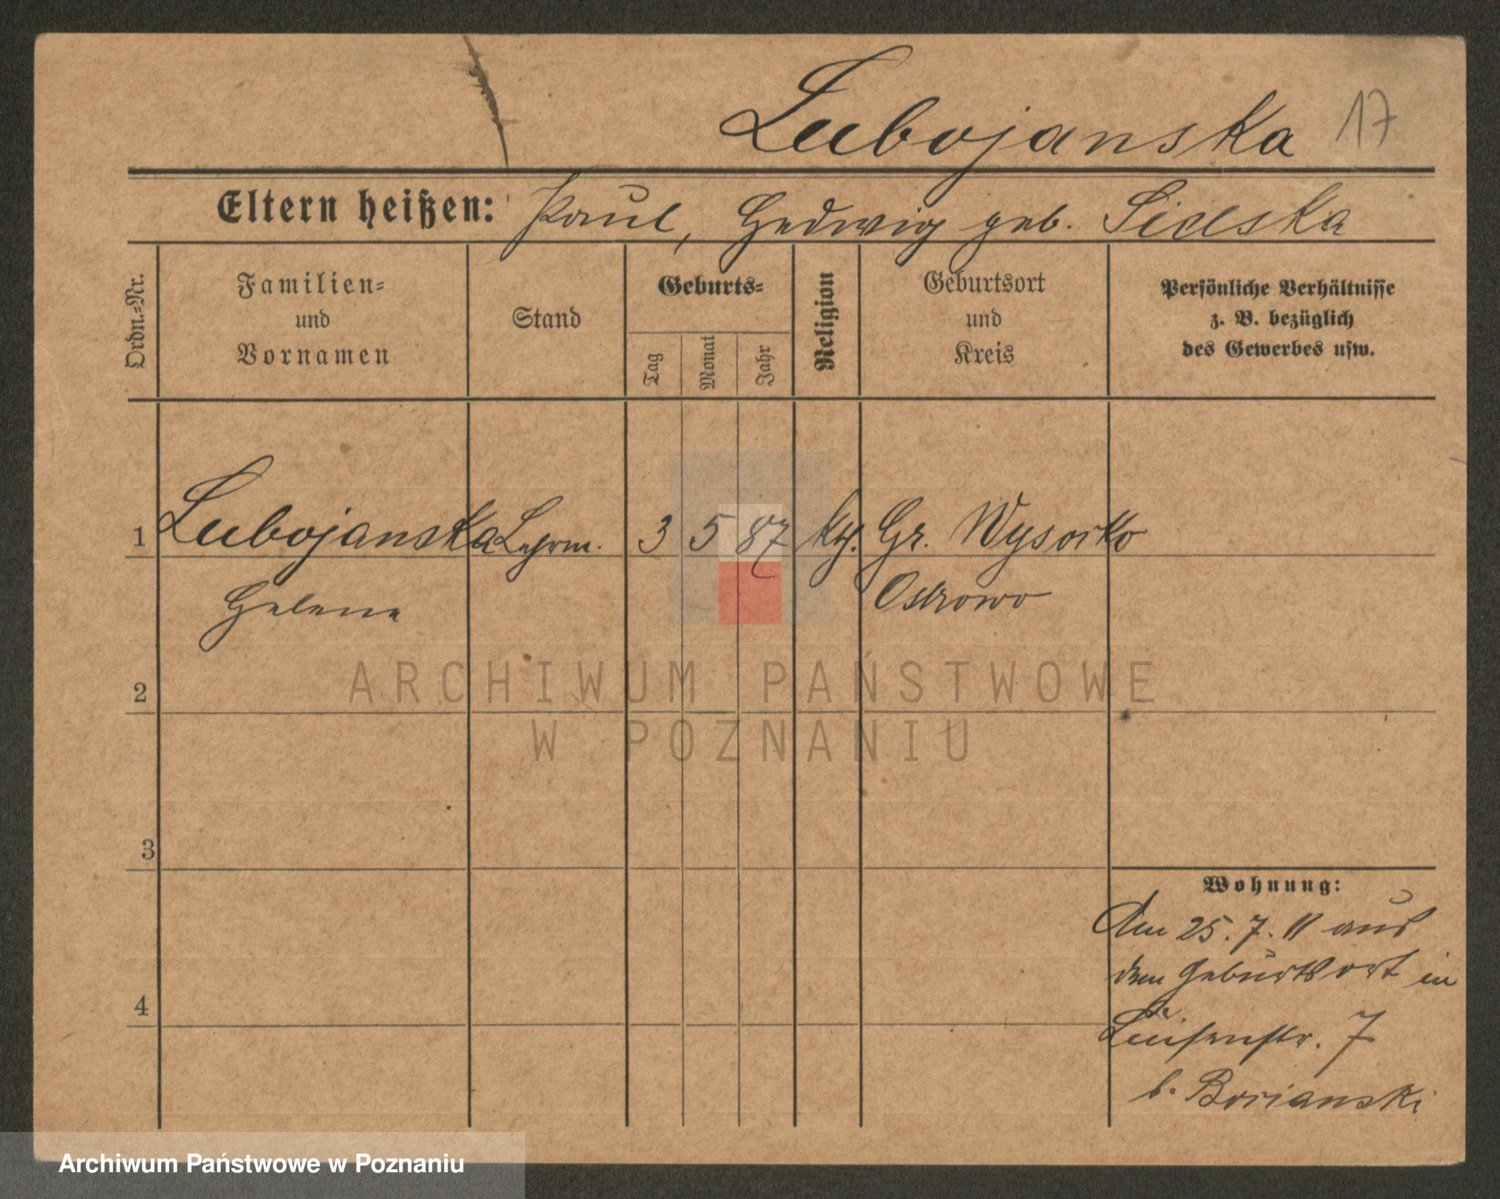 Lubojanska 17
Eltern heißen: Paul, Hedwig geb. Sielska
Ordn.-Nr.
Familien-
und
Vornamen
Stand
Geburts-
Tag
Monat
Jahr
Religion
Geburtsort
und
Kreis
Persönliche Verhältnisse
z. B. bezüglich
des Gewerbes usw.
1 Lubojanska 3 5 87 kth. Gr. Wysocko
Helene Ostrowo
2
ARCHIWUM PAŃSTWOWE
W POZNANIU
3
Wohnung:
Am 25. 7. 11 aus
dem Geburtsort in
4
Luisenstr. 7
b. Borianski
Archiwum Państwowe w Poznaniu